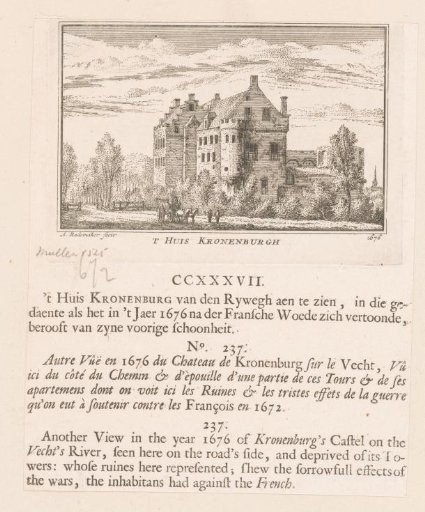 A. Rademaker fecit
'T HUIS KRONENBURGH
1676
muller 1525
672
CCXXXVII.
't Huis KRONENBURG van den Rywegh aen te zien, in die ge-
daente als het in 't Jaer 1676 na der Fransche Woede zich vertoonde,
berooft van zyne voorige schoonheit.
N°. 237:
Autre Vûë en 1676 du Chateau de Kronenburg sur le Vecht, Vû
ici du côté du Chemin & d'épouille d'une partie de ces Tours & de ses
apartemens dont on voit ici les Ruines & les tristes effèts de la guerre
qu'on eut à soutenir contre les François en 1672.
237:
Another View in the year 1676 of Kronenburg's Castel on the
Vecht's River, seen here on the road's side, and deprived of its To-
wers: whose ruines here represented; shew the sorrowfull effects of
the wars, the inhabitans had against the French.